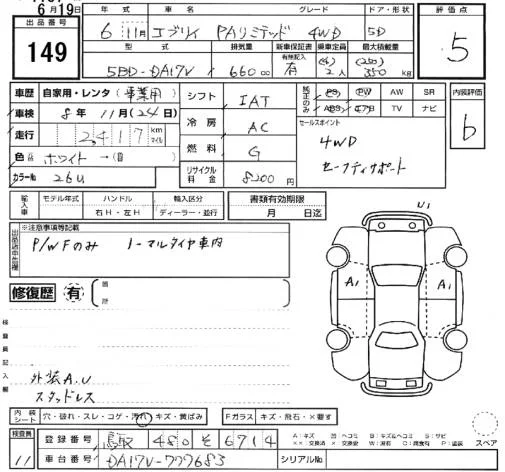 6月19日
出品番号
149
年式 車名 グレード ドア・形状
6 11月 エブリイ PAリミテッド 4WD 5D
型式 排気量 新車保証書 乗車定員 最大積載量
有無記入 (4) (250)
5BD-DA17V 660 cc 有 2人 350 kg
評価点
5
車歴 自家用・レンタ (事業用)
車検 8年 11月 (24日)
走行 2417 km マイル
色 ホワイト → (自)
カラーNo 26U
シフト IAT
冷房 AC
燃料 G
リサイクル料金 8200円
純正のみ PS PW AW SR
ABS ナビ TV
セールスポイント
4WD
セーフティサポート
内装評価
b
輸入車 モデル年式 ハンドル 輸入区分
右H・左H ディーラー・並行
書類有効期限
月 日迄
※注意事項等記載
P/WFのみ ノーマルタイヤ車内
修復歴 有 箇所
検査員記入欄
外装A.U
スタッドレス
U1
A1 A1
内装シート 穴・破れ・スレ・コゲ・汚れ・キズ・黄ばみ
Fガラス キズ・飛石・×要す
A:キズ U:ヘコミ B:キズ&ヘコミ S:サビ
スペア
検査員
11
登録番号 鳥取 480 そ 6714
車台番号 DA17V-777683
シリアルNo